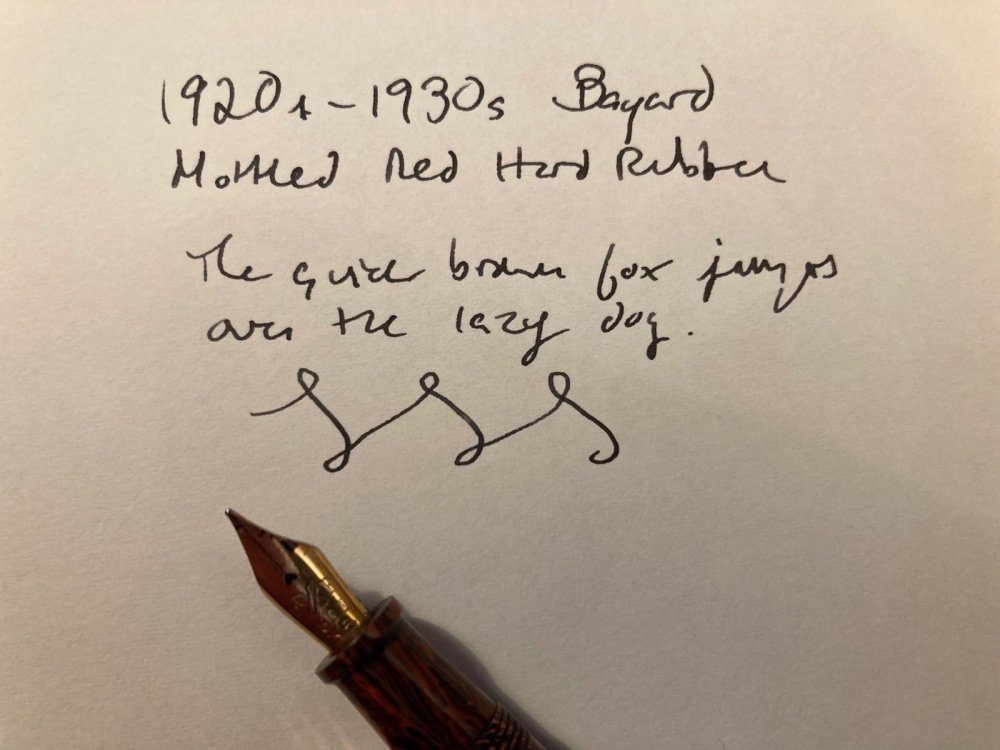 1920s-1930s Bayard
Mottled Red Hard Rubber
The quick brown fox jumps
over the lazy dog.